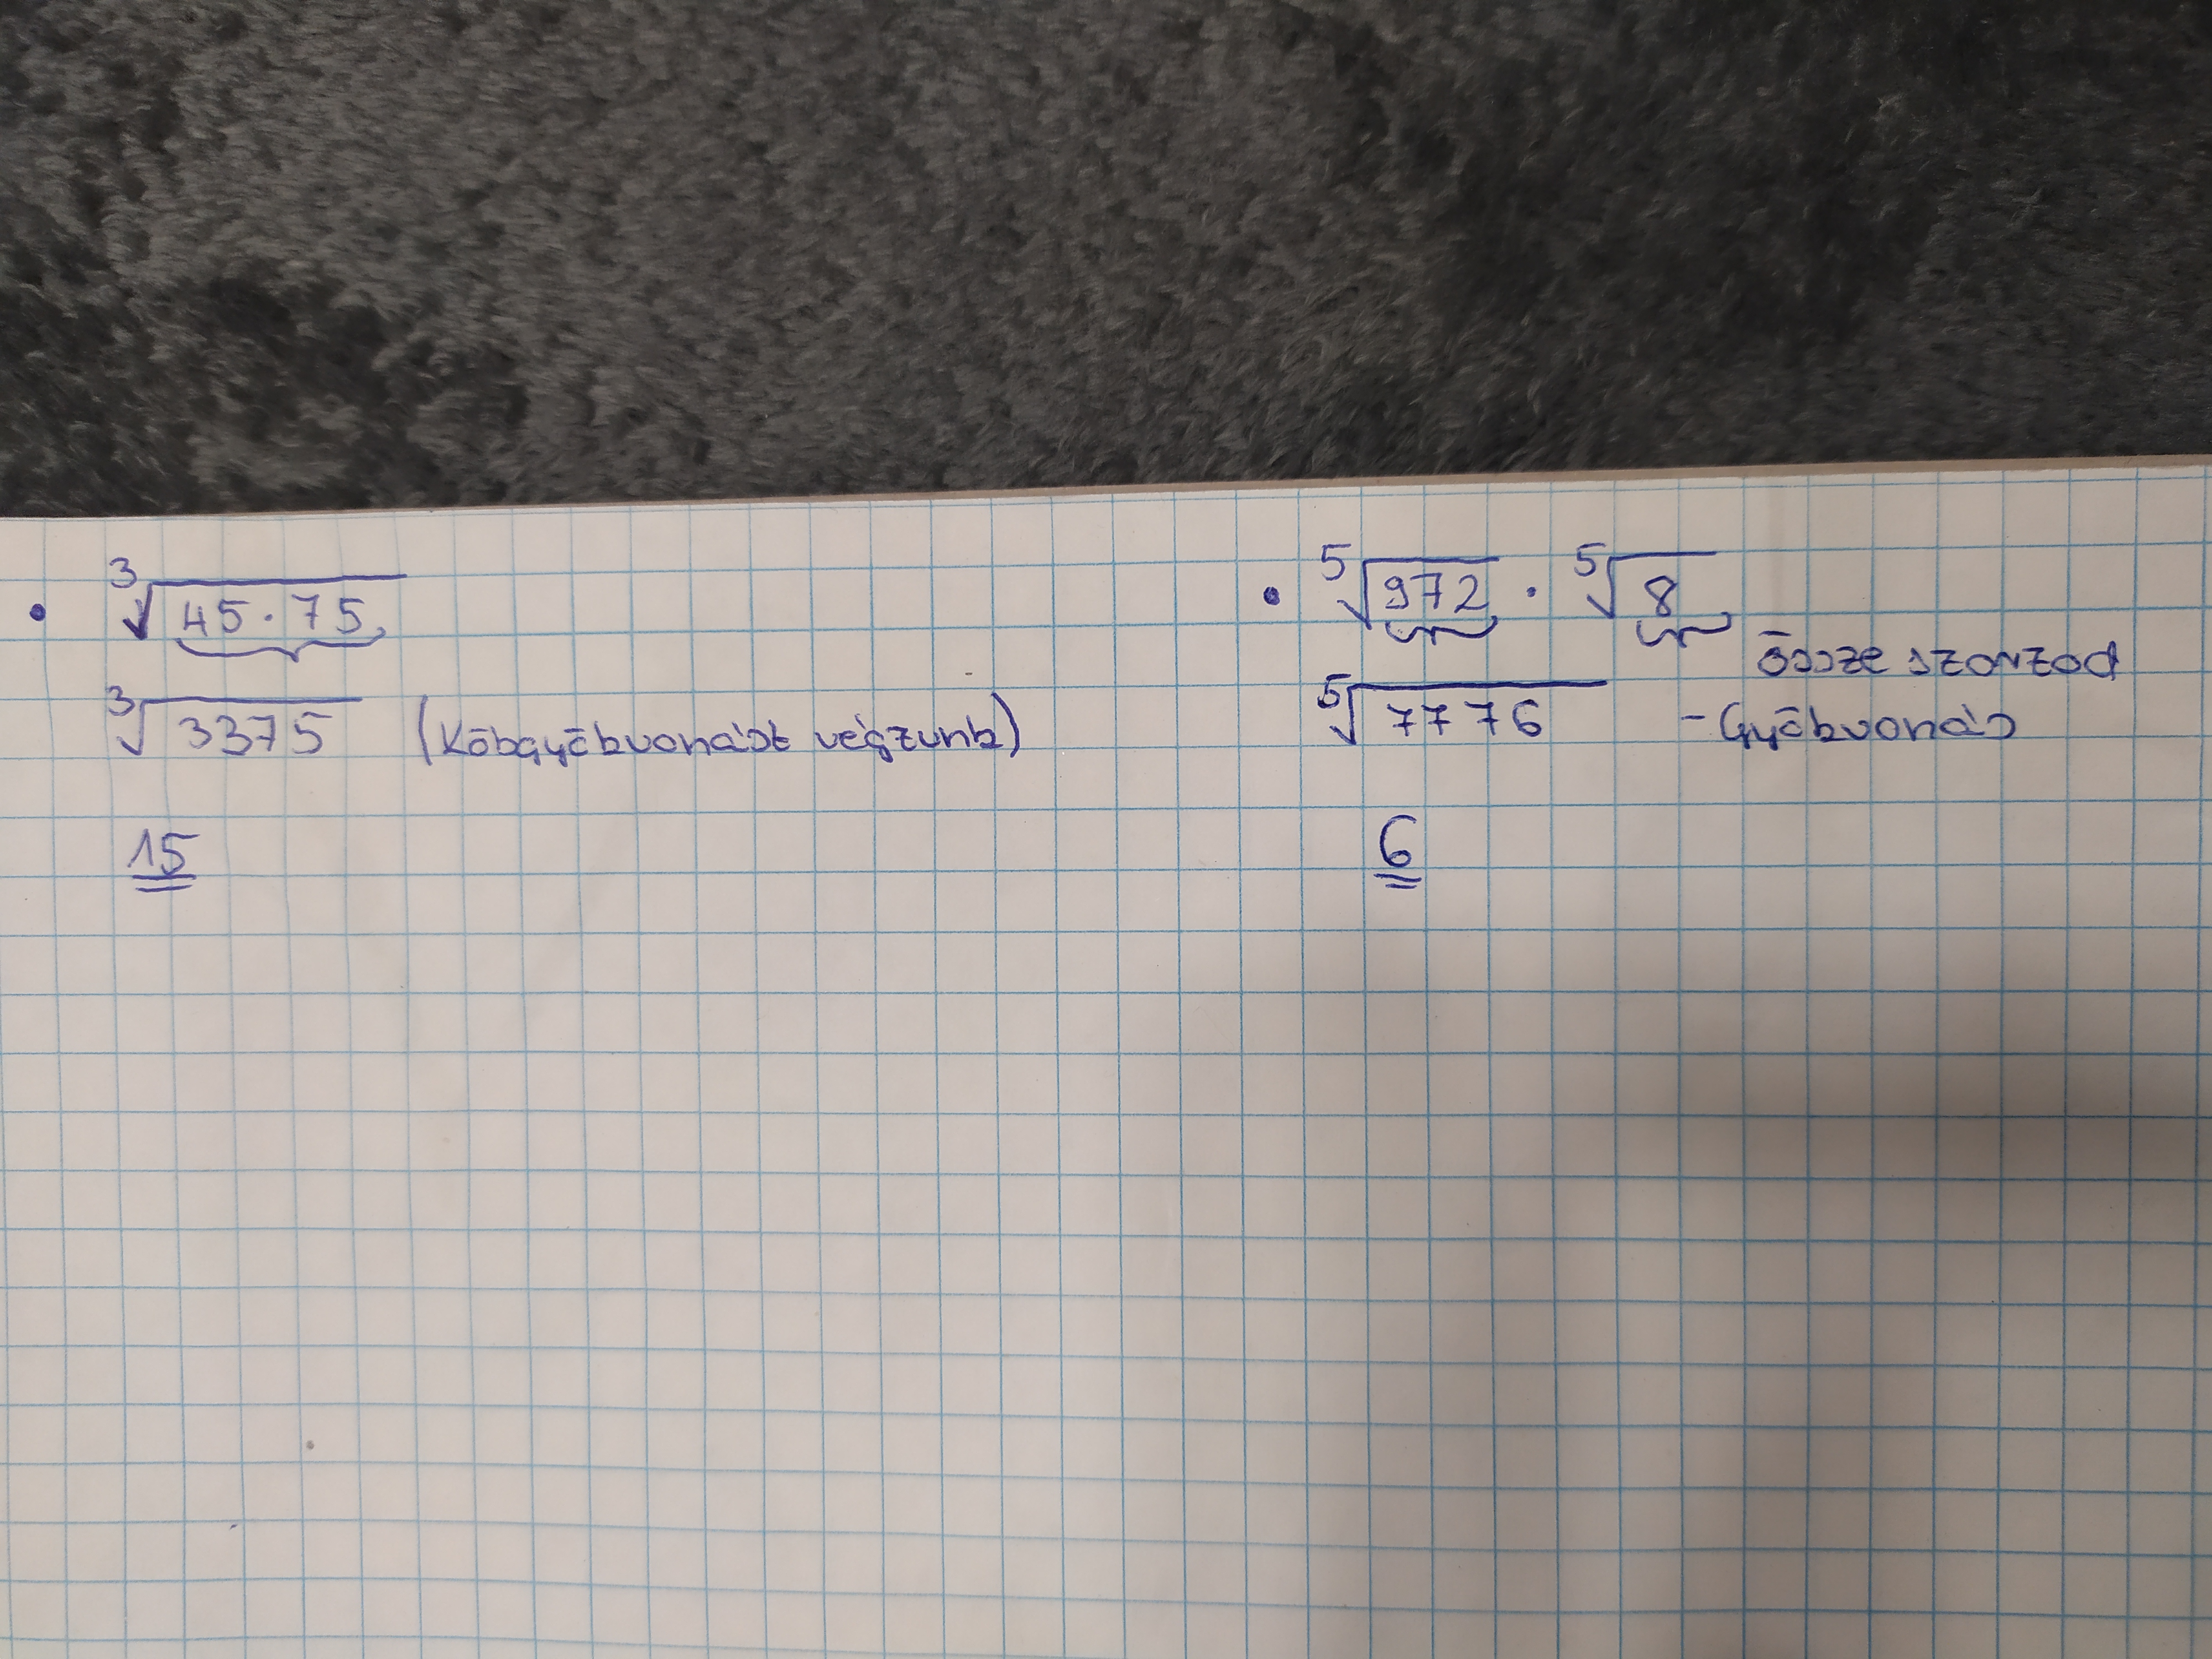 • ³√45·75
³√3375 (Köbgyökvonást végzünk)
15
• ⁵√972 · ⁵√8
össze szorzod
⁵√7776 - Gyökvonás
6